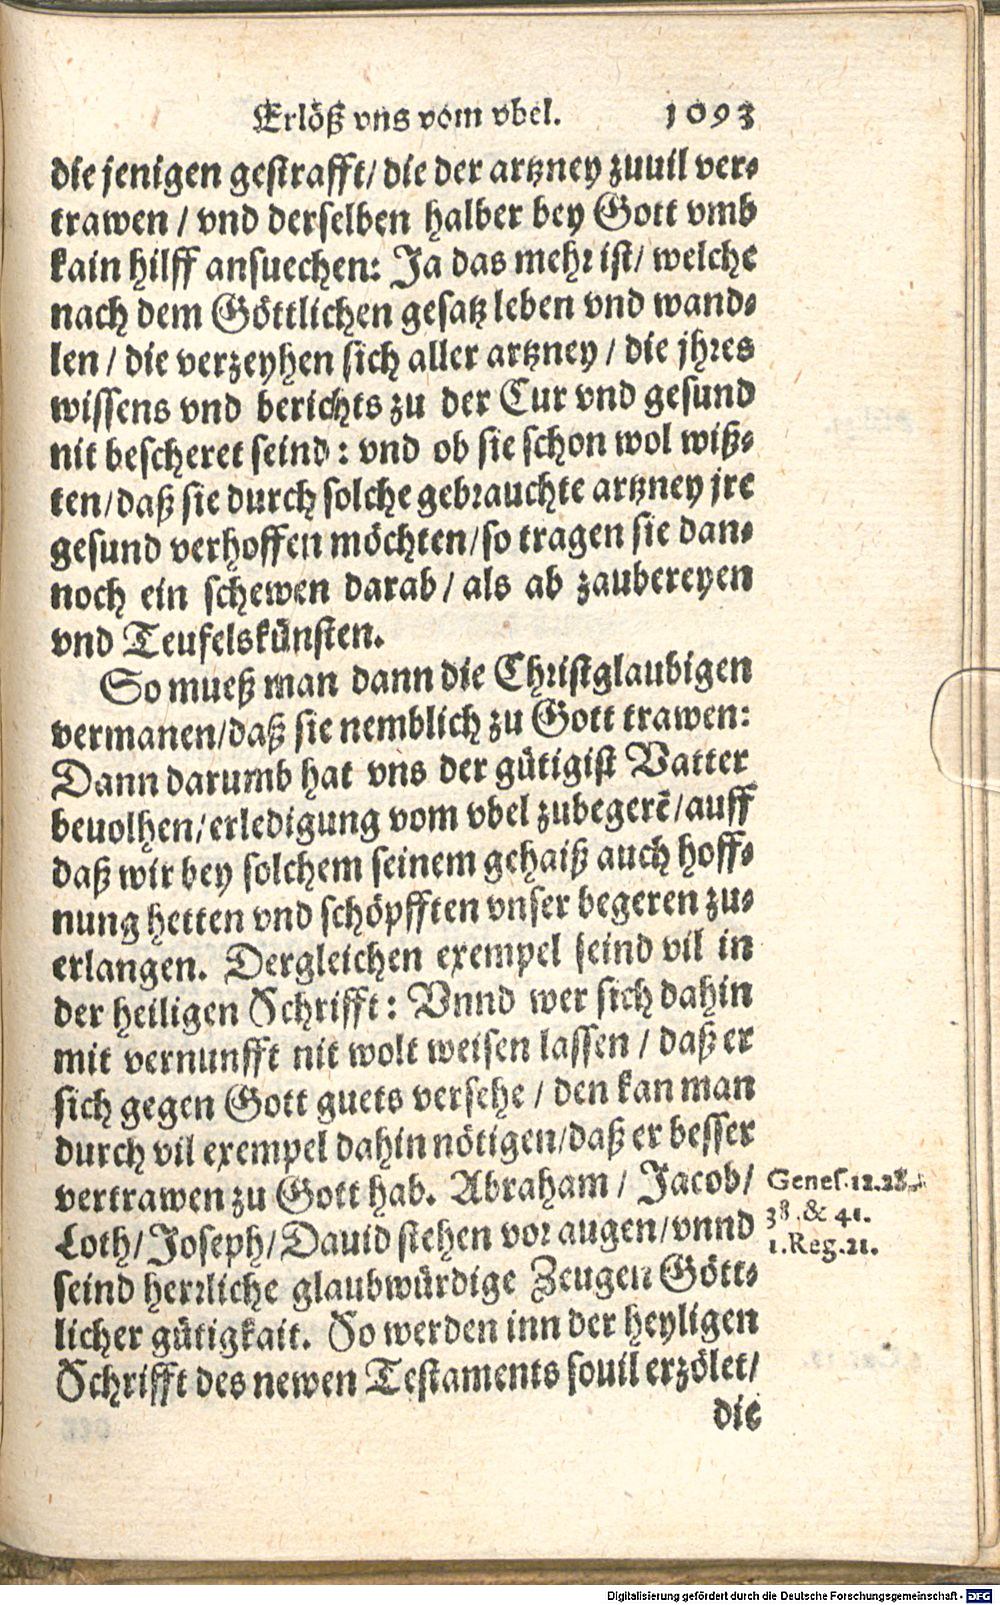 Erlöß vns vom vbel. 1093
die jenigen gestrafft/ die der artzney zuuil ver⸗
trawen / vnd derselben halber bey Gott vmb
kain hilff ansuechen: Ja das mehr ist/ welche
nach dem Göttlichen gesatz leben vnd wand⸗
len / die verzeyhen sich aller artzney / die jhres
wissens vnd berichts zu der Cur vnd gesund
nit bescheret seind : vnd ob sie schon wol wiß⸗
ten/daß sie durch solche gebrauchte artzney jre
gesund verhoffen möchten/so tragen sie dan⸗
noch ein schewen darab / als ab zaubereyen
vnd Teufelskünsten.
So mueß man dann die Christglaubigen
vermanen/daß sie nemblich zu Gott trawen:
Dann darumb hat vns der gütigist Vatter
beuolhen/erledigung vom vbel zubegerē/auff
daß wir bey solchem seinem gehaiß auch hoff⸗
nung hetten vnd schöpfften vnser begeren zu⸗
erlangen. Dergleichen exempel seind vil in
der heiligen Schrifft: Vnnd wer sich dahin
mit vernunfft nit wolt weisen lassen / daß er
sich gegen Gott guets versehe / den kan man
durch vil exempel dahin nötigen/daß er besser
vertrawen zu Gott hab. Abraham / Jacob/
Loth/ Joseph/ Dauid stehen vor augen/vnnd
seind herrliche glaubwürdige Zeugen Gött⸗
licher gütigkait. So werden inn der heyligen
Schrifft des newen Testaments souil erzölet/
die
Genes. 12.28.
38. & 41.
1.Reg.21.
Digitalisierung gefördert durch die Deutsche Forschungsgemeinschaft - DFG